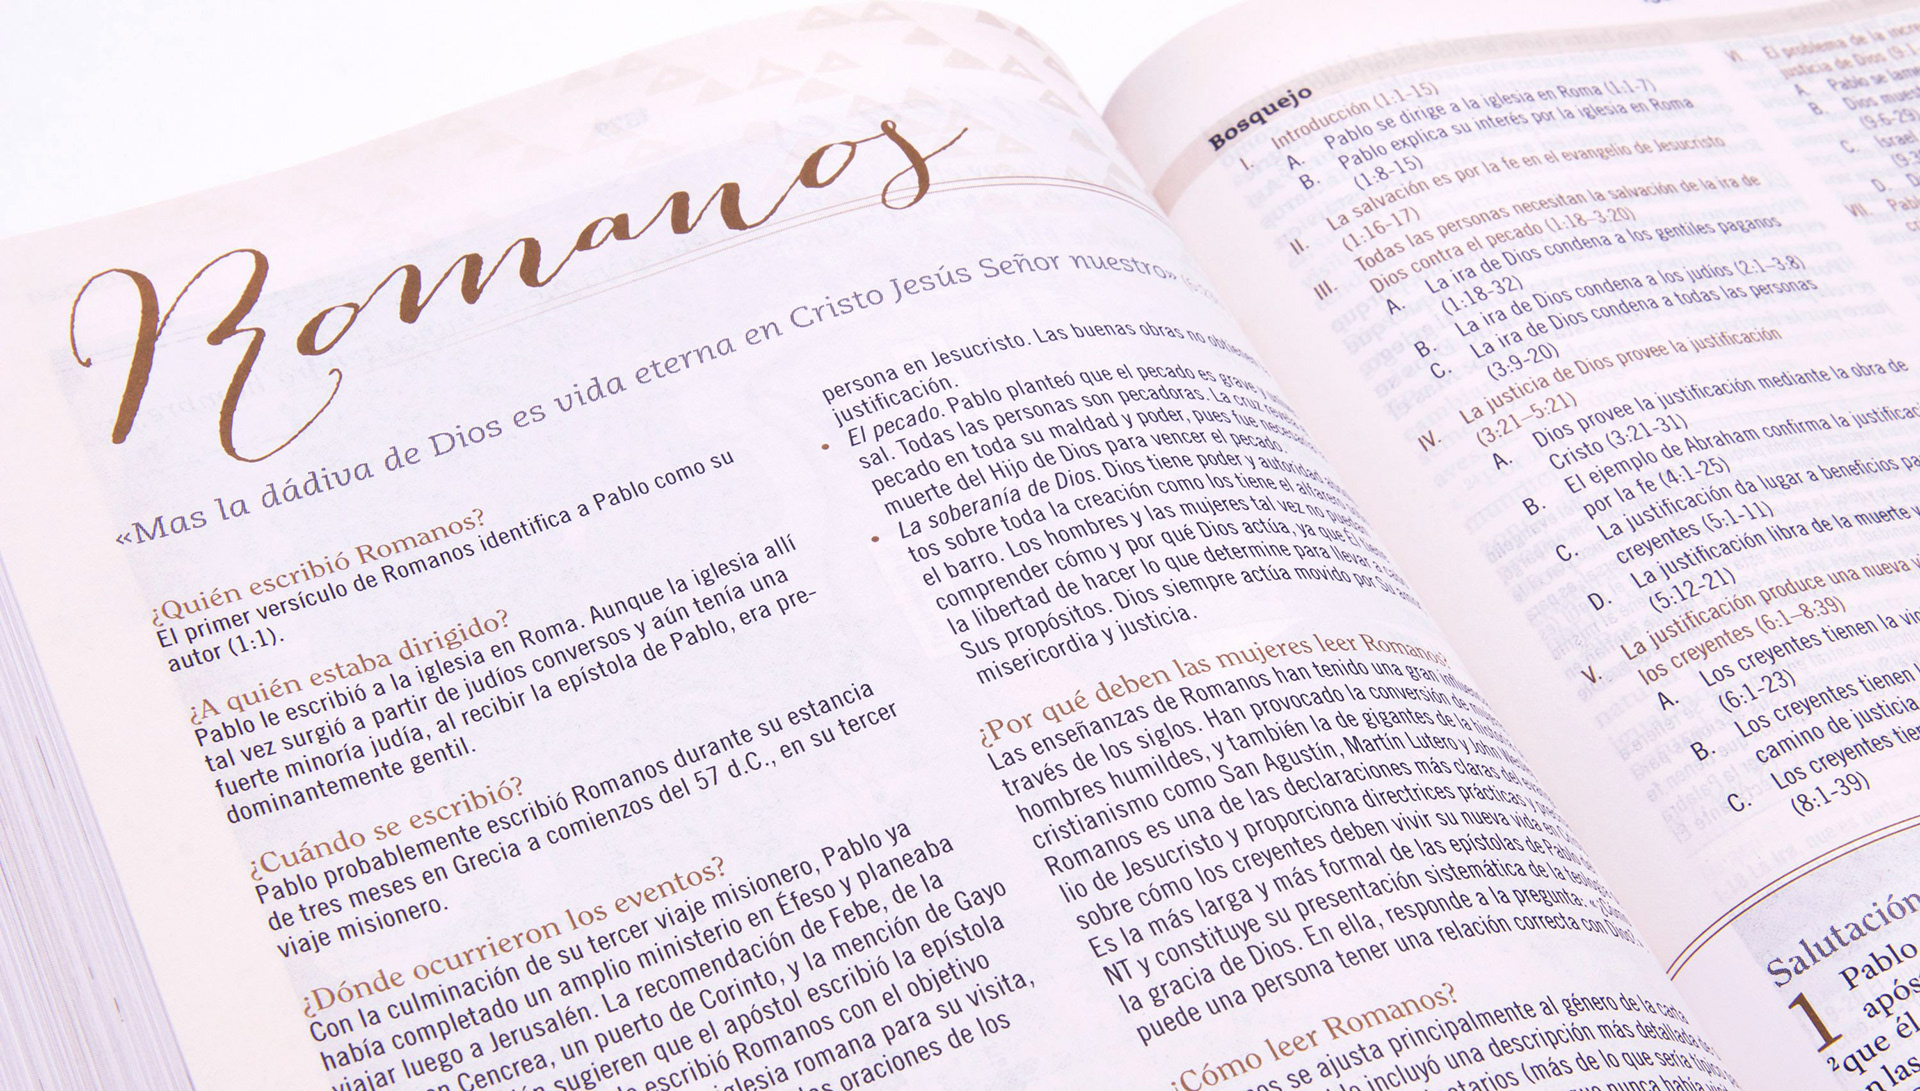 Romanos
«Mas la dádiva de Dios es vida eterna en Cristo Jesús Señor nuestro»
¿Quién escribió Romanos?
El primer versículo de Romanos identifica a Pablo como su
autor (1:1).
¿A quién estaba dirigido?
Pablo le escribió a la iglesia en Roma. Aunque la iglesia allí
tal vez surgió a partir de judíos conversos y aún tenía una
fuerte minoría judía, al recibir la epístola de Pablo, era pre-
dominantemente gentil.
¿Cuándo se escribió?
Pablo probablemente escribió Romanos durante su estancia
de tres meses en Grecia a comienzos del 57 d.C., en su tercer
viaje misionero.
¿Dónde ocurrieron los eventos?
Con la culminación de su tercer viaje misionero, Pablo ya
había completado un amplio ministerio en Éfeso y planeaba
viajar luego a Jerusalén. La recomendación de Febe, de la
en Cencrea, un puerto de Corinto, y la mención de Gayo
sugieren que el apóstol escribió la epístola
escribió Romanos con el objetivo
iglesia romana para su visita,
oraciones de los
persona en Jesucristo. Las buenas obras no
justificación.
• El pecado. Pablo planteó que el pecado es grave
sal. Todas las personas son pecadoras. La cruz
pecado en toda su maldad y poder, pues fue
muerte del Hijo de Dios para vencer el pecado.
• La soberanía de Dios. Dios tiene poder y autoridad
tos sobre toda la creación como los tiene el
el barro. Los hombres y las mujeres tal vez no
comprender cómo y por qué Dios actúa, ya que Él
la libertad de hacer lo que determine para llevar a
Sus propósitos. Dios siempre actúa movido por Su
misericordia y justicia.
¿Por qué deben las mujeres leer Romanos?
Las enseñanzas de Romanos han tenido una gran
través de los siglos. Han provocado la conversión de
hombres humildes, y también la de gigantes de la
cristianismo como San Agustín, Martín Lutero y John
Romanos es una de las declaraciones más claras del
lio de Jesucristo y proporciona directrices prácticas
sobre cómo los creyentes deben vivir su nueva vida en
Es la más larga y más formal de las epístolas de Pablo
NT y constituye su presentación sistemática de la
la gracia de Dios. En ella, responde a la pregunta:
puede una persona tener una relación correcta con
¿Cómo leer Romanos?
se ajusta principalmente al género de la carta
incluyó una descripción más detallada
(más de lo que sería
nunca había
Bosquejo
I. Introducción (1:1-15)
A. Pablo se dirige a la iglesia en Roma (1:1-7)
B. Pablo explica su interés por la iglesia en Roma
(1:8-15)
II. La salvación es por la fe en el evangelio de Jesucristo
(1:16-17)
III. Todas las personas necesitan la salvación de la ira de
Dios contra el pecado (1:18–3:20)
A. La ira de Dios condena a los gentiles paganos
(1:18-32)
B. La ira de Dios condena a los judíos (2:1–3:8)
C. La ira de Dios condena a todas las personas
(3:9-20)
IV. La justicia de Dios provee la justificación
(3:21–5:21)
A. Dios provee la justificación mediante la obra de
Cristo (3:21-31)
B. El ejemplo de Abraham confirma la
por la fe (4:1-25)
C. La justificación da lugar a beneficios
creyentes (5:1-11)
D. La justificación libra de la muerte y
(5:12-21)
V. La justificación produce una nueva
los creyentes (6:1–8:39)
A. Los creyentes tienen la
(6:1-23)
B. Los creyentes tienen
camino de justicia
C. Los creyentes
(8:1-39)
VI. El problema de la
justicia de Dios
A. Pablo se
B. Dios
C. Israel
D.
VII.
Salutación
1 Pablo
2 que él